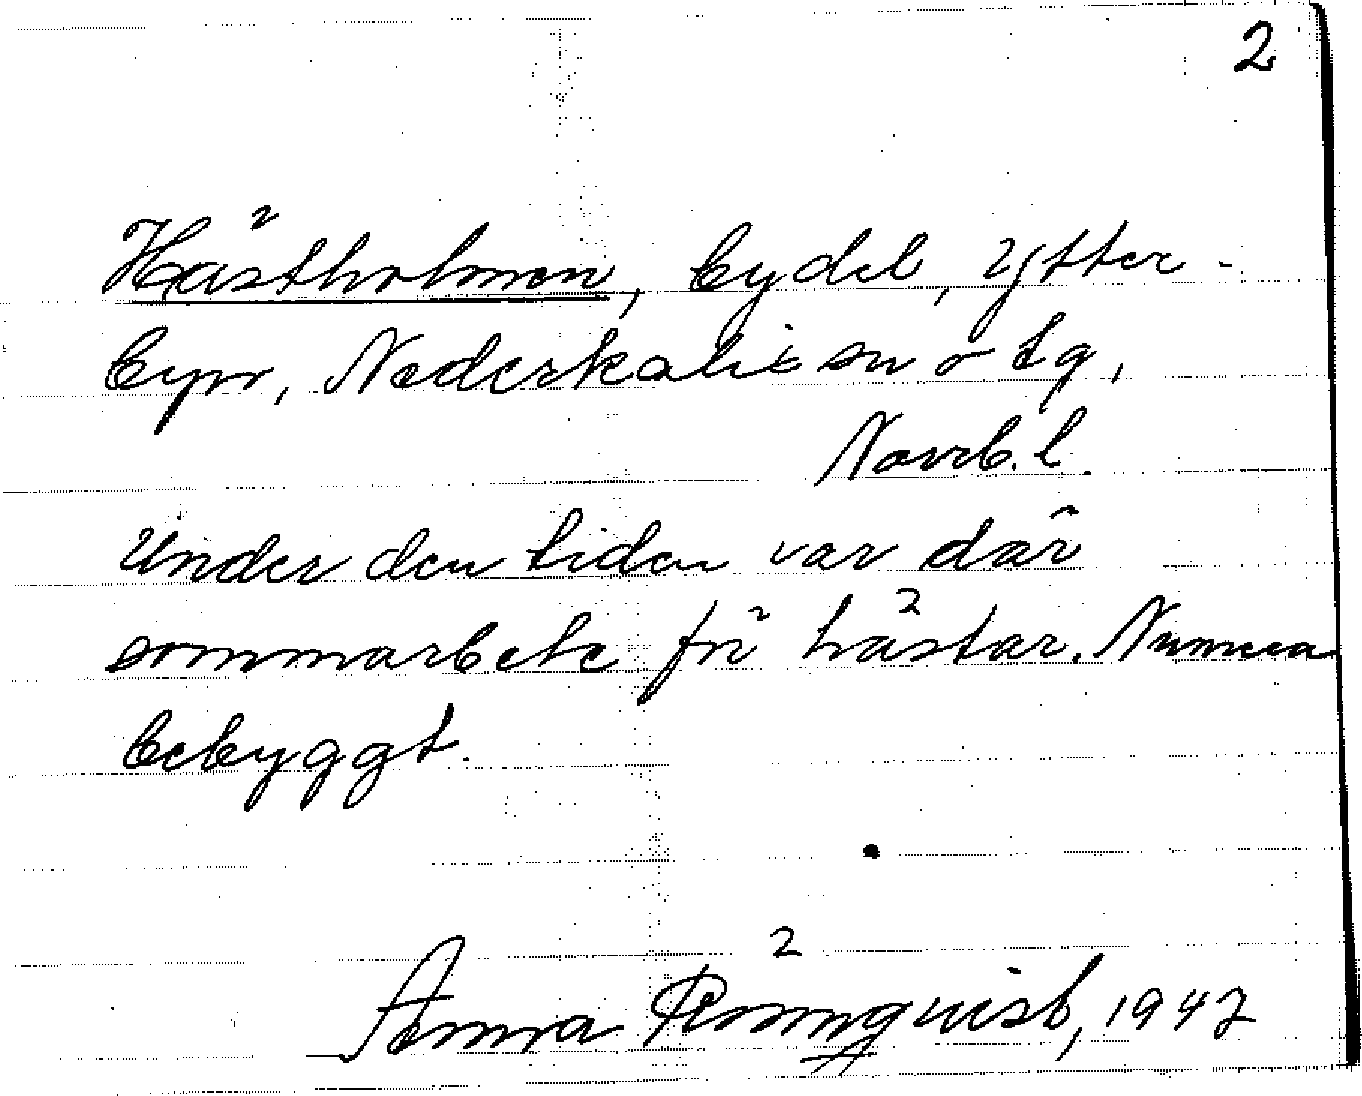 2
Hästholmen, bydel, Ytter-
byn, Nederkalix sn o tg,
Norrb. l.
Under den tiden var där
sommarbete för hästar. Numera
bebyggt.
Anna Rönnqvist, 1947